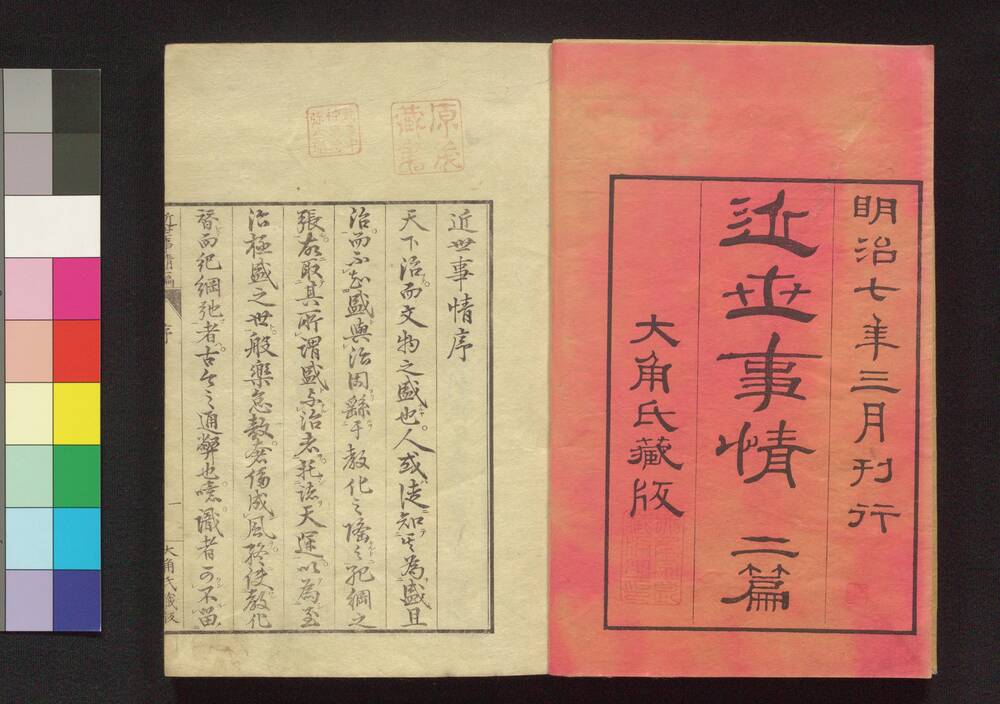 明治七年三月刊行
近世事情 二篇
大角氏藏版
近世事情序
天下治而文物之盛也人或徒知其為盛且
治而不知盛與治因繇于教化之隆與紀綱之
張故取其所謂盛與治者托諸天運以為至
治極盛之世般樂怠敖奢侈成風終使教化
替而紀綱弛者古今之通弊也噫識者可不留
序
一
大角氏藏版